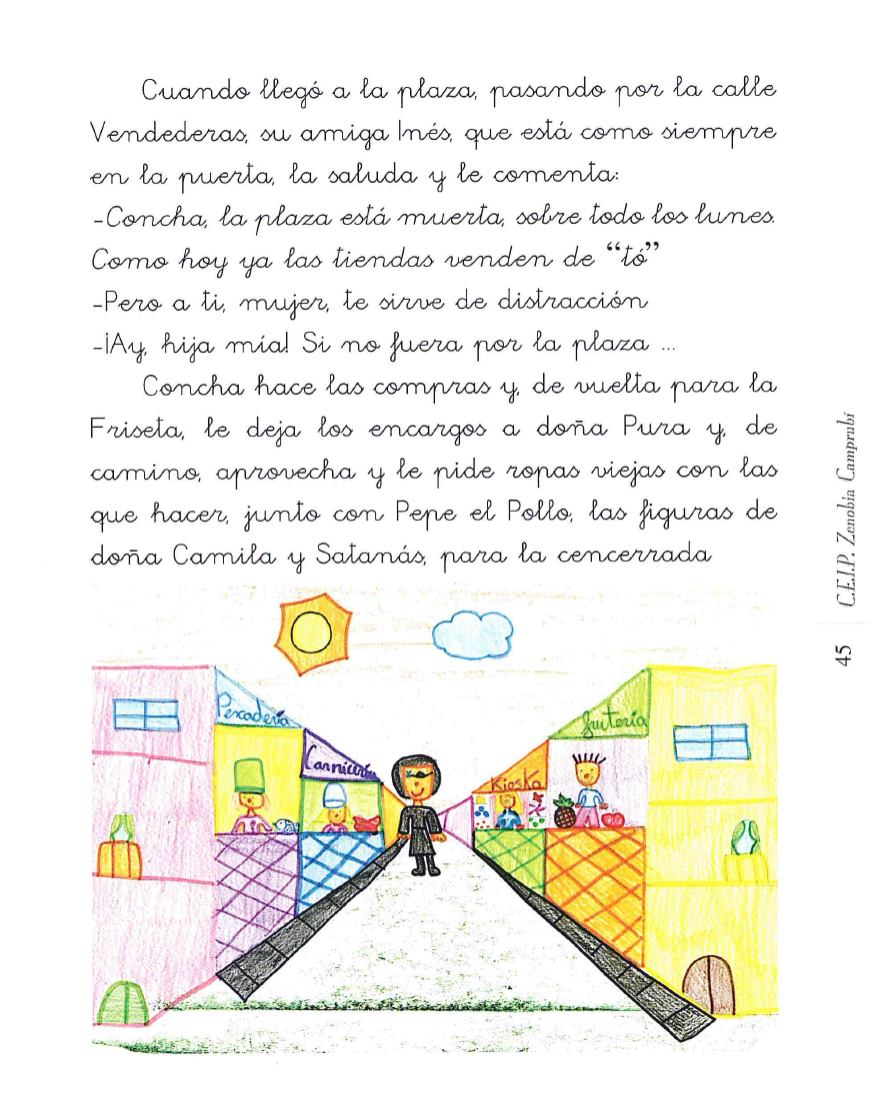 Cuando llegó a la plaza, pasando por la calle
Vendederas, su amiga Inés, que está como siempre
en la puerta, la saluda y le comenta:
-Concha, la plaza está muerta, sobre todo los lunes.
Como hoy ya las tiendas venden de “tó”
-Pero a ti, mujer, te sirve de distracción
-¡Ay, hija mía! Si no fuera por la plaza ...
Concha hace las compras y, de vuelta para la
Friseta, le deja los encargos a doña Pura y, de
camino, aprovecha y le pide ropas viejas con las
que hacer, junto con Pepe el Pollo, las figuras de
doña Camila y Satanás, para la cencerrada
Pescadería
Carnicería
Kiosko
frutería
45
C.E.I.P. Zenobia Camprubí